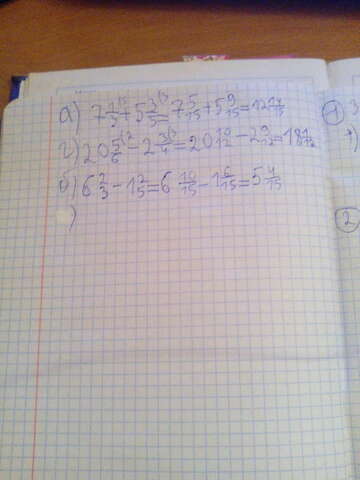 а) 7 1/3 + 5 3/5 = 7 5/15 + 5 9/15 = 12 14/15
г) 20 5/6 - 2 3/4 = 20 10/12 - 2 9/12 = 18 1/12
б) 6 2/3 - 1 2/5 = 6 10/15 - 1 6/15 = 5 4/15
)
1
2